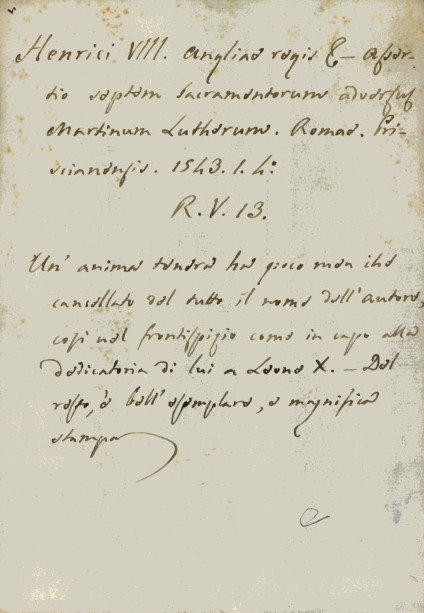 Henrici VIII. Angliae regis &c. – asser-
tio septem sacramentorum adversus
Martinum Lutherum. Romae. Pri-
scianensis. 1543. 1. 4.º
R. V. 13.
Un' anima tenera ha poco men che
cancellato del tutto il nome dell' autore,
così nel frontispizio come in capo alla
dedicatoria di lui a Leone X. – Del
resto, è bell' esemplare, e magnifica
stampa